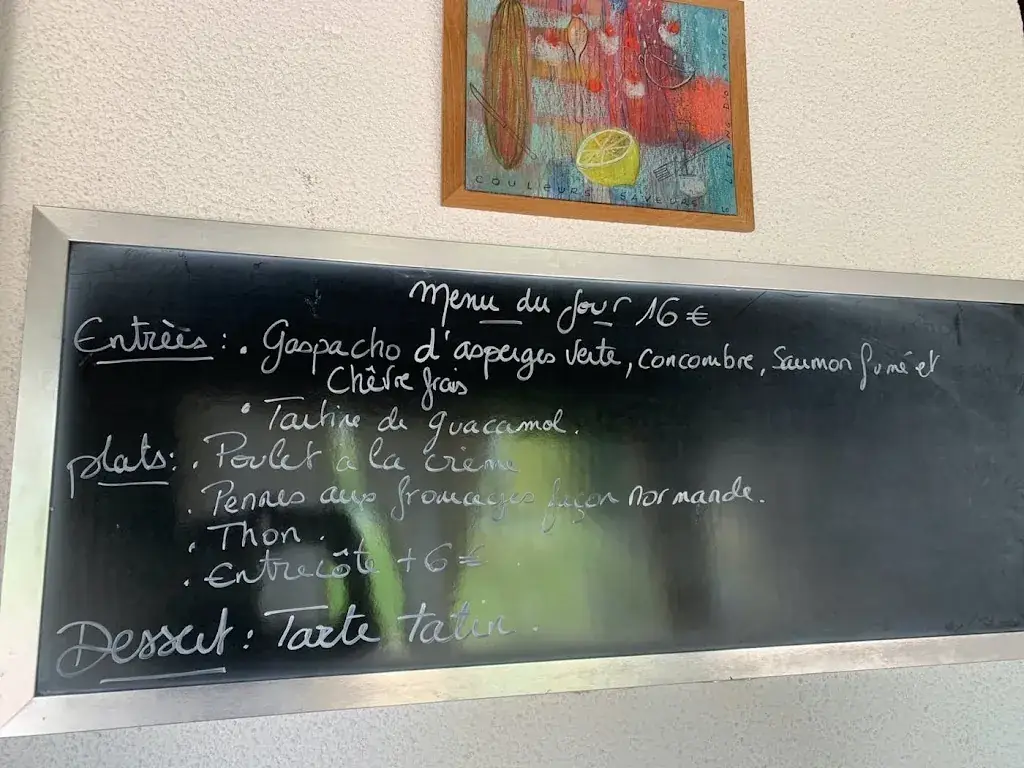 COULEURS SAVEURS
Menu du Jour 16 €
Entrées : . Gaspacho d'asperges verte, concombre, Saumon fumé et
Chêvre frais
. Tartine de guacamol.
plats : . Poulet a la crème
. Pennes aux fromages façon normande.
. Thon .
. Entrecôte + 6 €
Dessert : Tarte tatin .